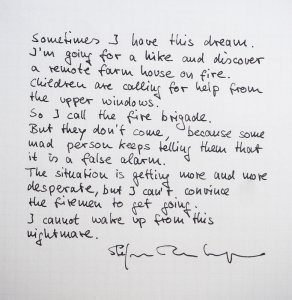 Sometimes I have this dream.
I'm going for a hike and discover
a remote farm house on fire.
Children are calling for help from
the upper windows.
So I call the fire brigade.
But they don't come, because some
mad person keeps telling them that
it is a false alarm.
The situation is getting more and more
desperate, but I can't convince
the firemen to get going.
I cannot wake up from this
nightmare.